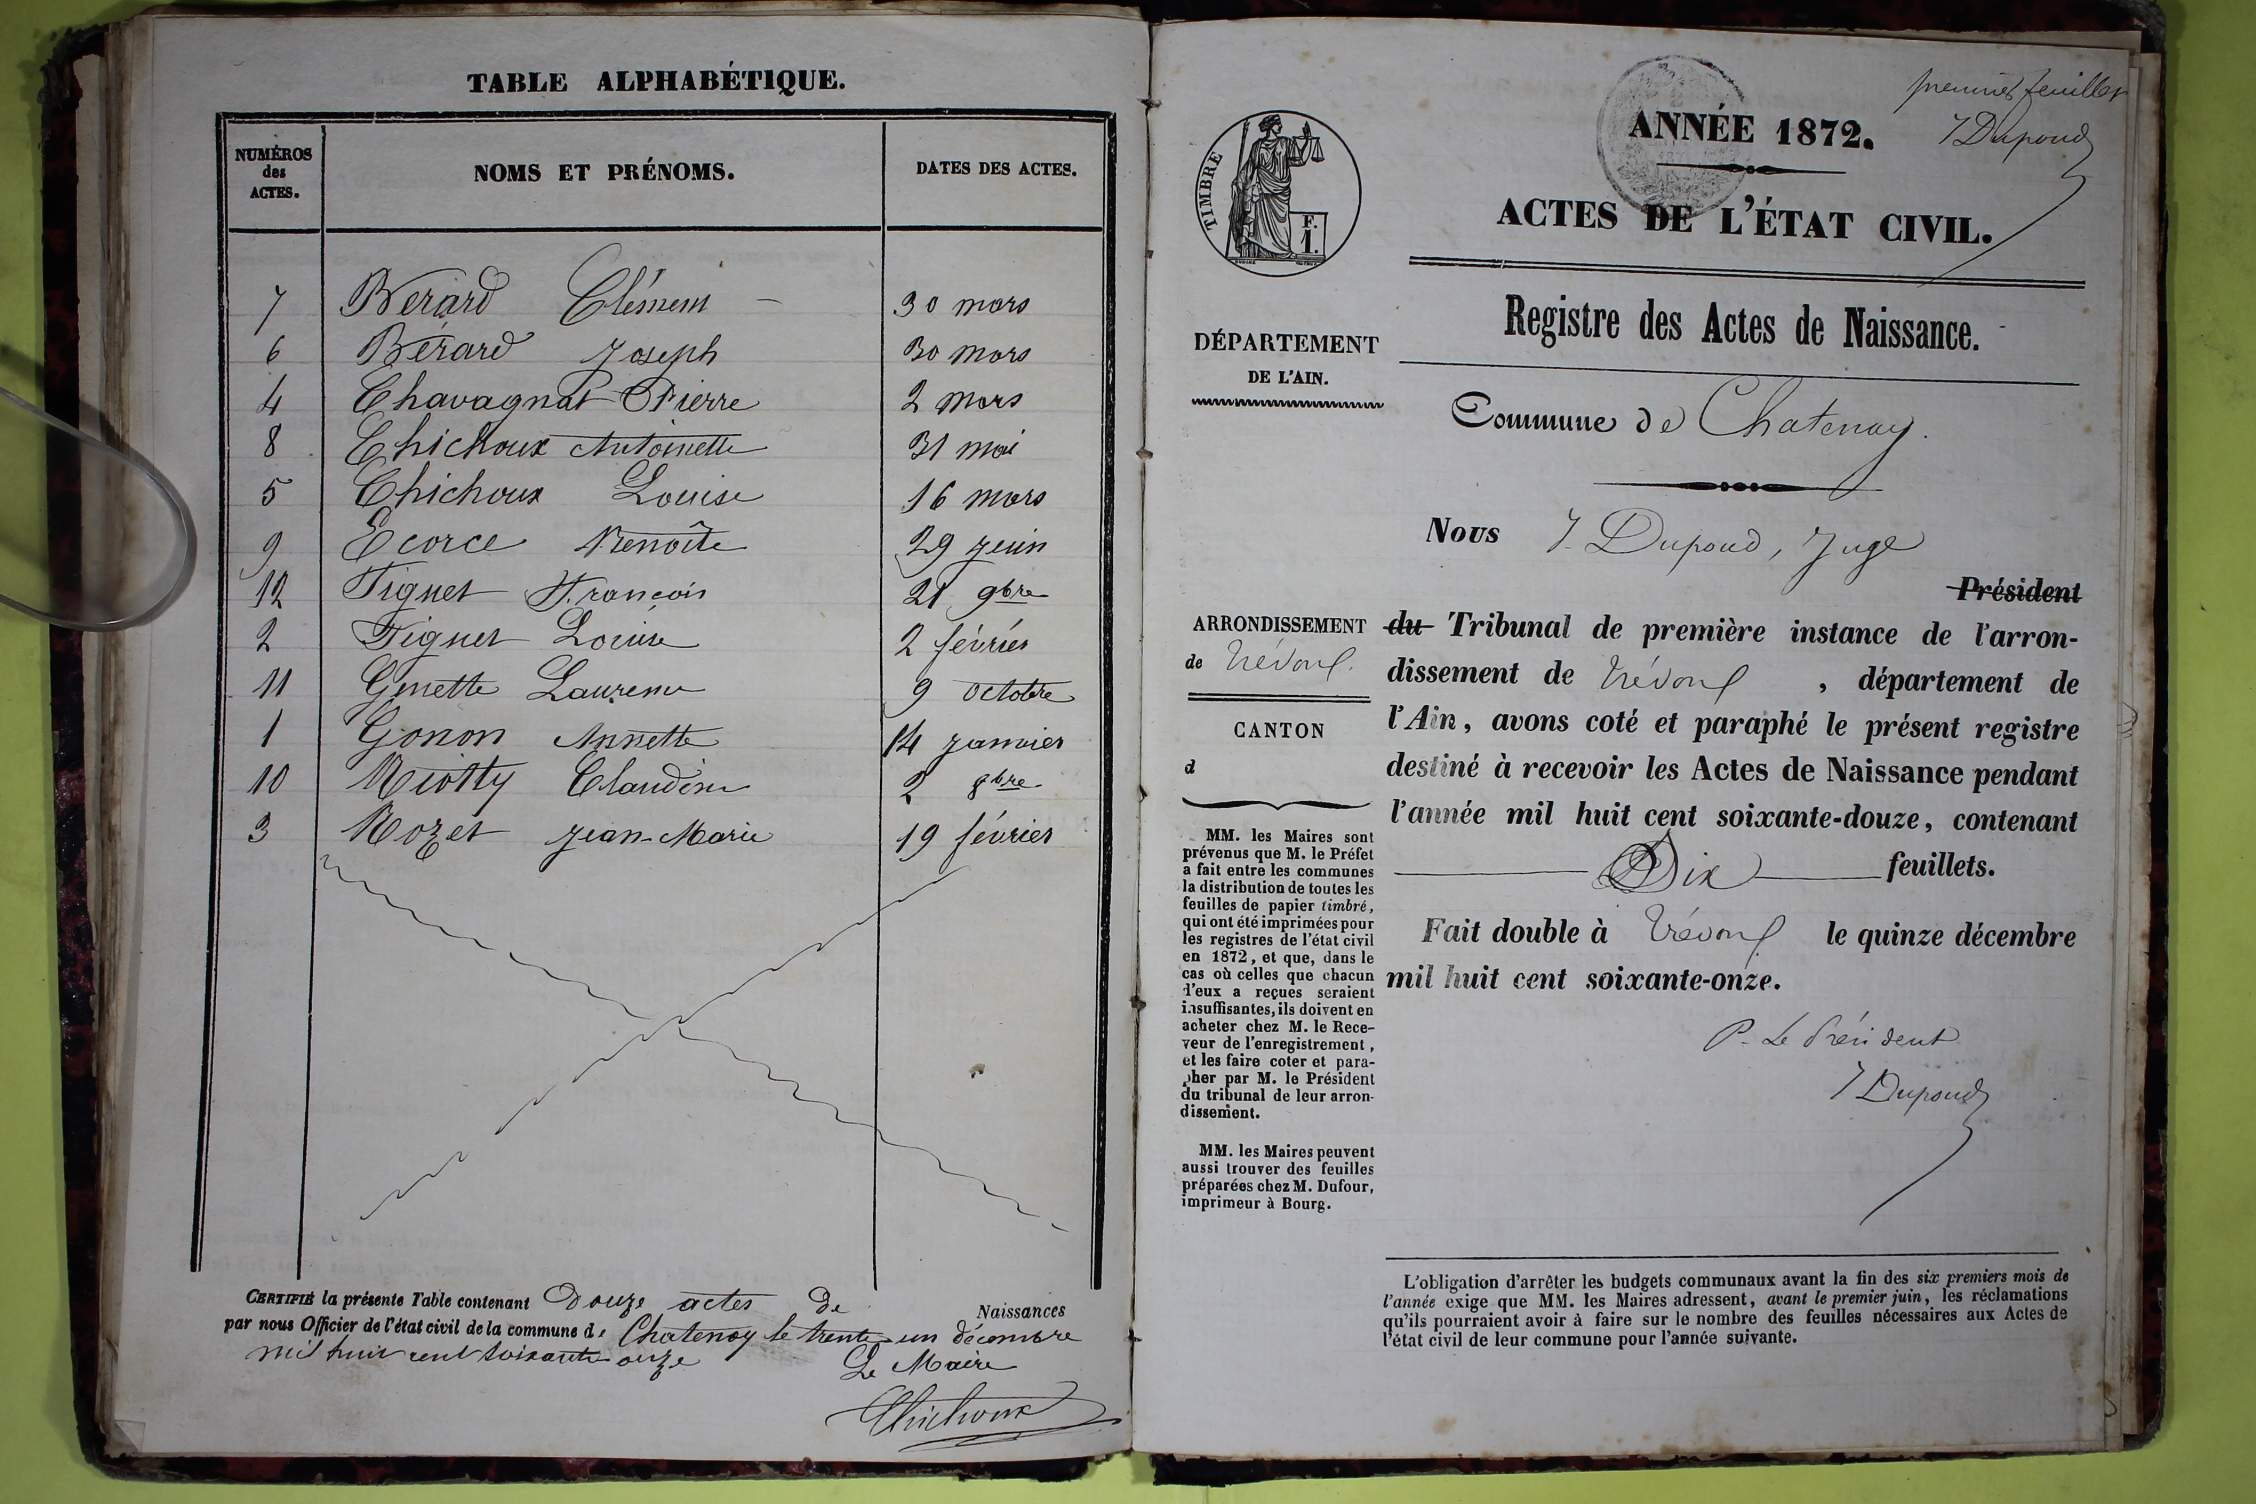 TABLE ALPHABÉTIQUE.
NUMÉROS des ACTES.
NOMS ET PRÉNOMS.
DATES DES ACTES.
7 Bérard Clément 30 mars
6 Bérard Joseph 30 mars
4 Chavagnat Pierre 2 mars
8 Chichoux Antoinette 31 mai
5 Chichoux Louise 16 mars
9 Ecorce Benoîte 29 juin
12 Figuet François 21 9bre
2 Figuet Louise 2 février
11 Genette Laurence 9 octobre
1 Gonon Annette 14 janvier
10 Claudine 2 8bre
3 Jean-Marie 19 février
CERTIFIÉ la présente Table contenant Douze actes de Naissances
par nous Officier de l'état civil de la commune de Chatenay le trente-un décembre
mil huit cent soixante onze
Le Maire
Chichoux
premier feuillet
J Dupoud
ANNÉE 1872.
ACTES DE L'ÉTAT CIVIL.
TIMBRE
F.
1.
Registre des Actes de Naissance.
DÉPARTEMENT
DE L'AIN.
Commune de Chatenay.
Nous J. Dupoud, Juge
Président
du Tribunal de première instance de l'arron-
dissement de Trévoux, département de
l'Ain, avons coté et paraphé le présent registre
destiné à recevoir les Actes de Naissance pendant
l'année mil huit cent soixante-douze, contenant
Dix feuillets.
Fait double à Trévoux le quinze décembre
mil huit cent soixante-onze.
P. Le Président
J Dupoud
ARRONDISSEMENT
de Trévoux.
CANTON
d
MM. les Maires sont
prévenus que M. le Préfet
a fait entre les communes
la distribution de toutes les
feuilles de papier timbré,
qui ont été imprimées pour
les registres de l'état civil
en 1872, et que, dans le
cas où celles que chacun
d'eux a reçues seraient
insuffisantes, ils doivent en
acheter chez M. le Rece-
veur de l'enregistrement,
et les faire coter et para-
pher par M. le Président
du tribunal de leur arron-
dissement.
MM. les Maires peuvent
aussi trouver des feuilles
préparées chez M. Dufour,
imprimeur à Bourg.
L'obligation d'arrêter les budgets communaux avant la fin des six premiers mois de
l'année exige que MM. les Maires adressent, avant le premier juin, les réclamations
qu'ils pourraient avoir à faire sur le nombre des feuilles nécessaires aux Actes de
l'état civil de leur commune pour l'année suivante.